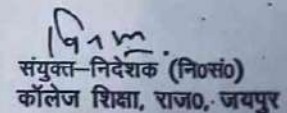 संयुक्त-निदेशक (नि०सं०)
कॉलेज शिक्षा, राज०, जयपुर